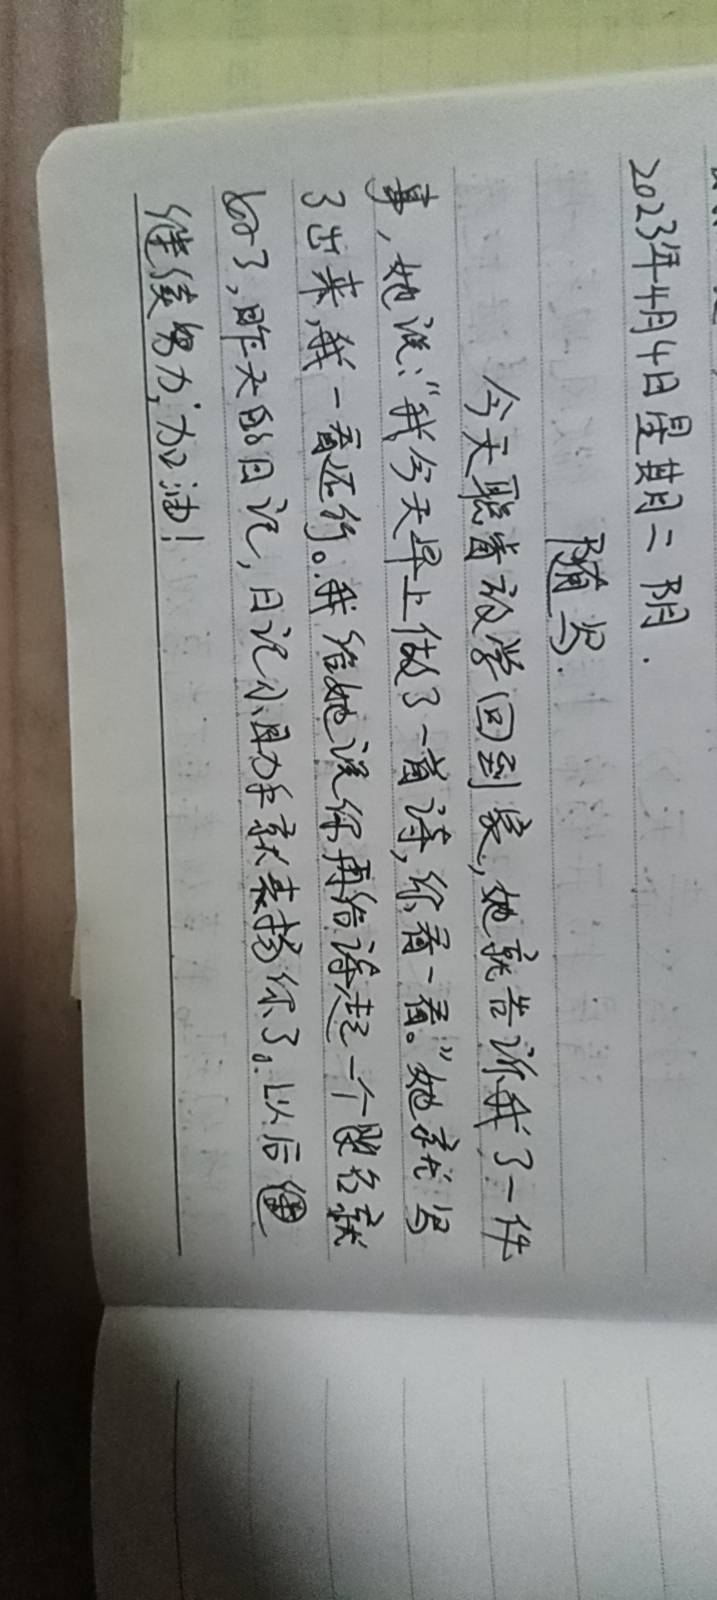 2023年4月4日星期二 阴.
随写.
今天聪睿放学回到家,她就告诉我了一件
事,她说:"我今天早上做了一首诗,你看一看。"她就写
了出来,我一看还行。我给她说你再给诗起一个题名就
好了,昨天的日记,日记小助手就表扬你了。以后
继续努力,加油!